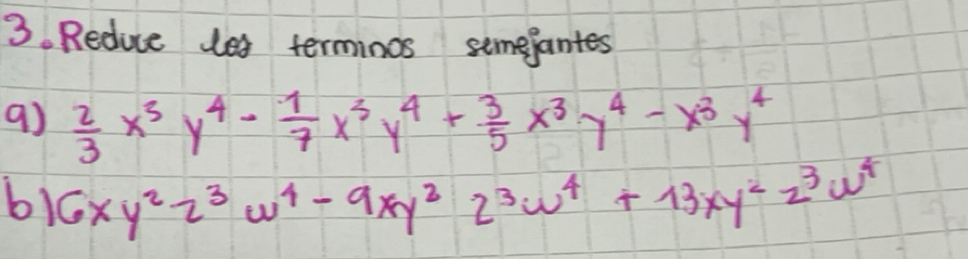 3. Reduce los terminos semejantes
a) \frac{2}{3} x³ y⁴ - \frac{1}{7} x³ y⁴ + \frac{3}{5} x³ y⁴ - x³ y⁴
b) 6xy² z³ w⁴ - 9xy² z³ w⁴ + 13xy² z³ w⁴